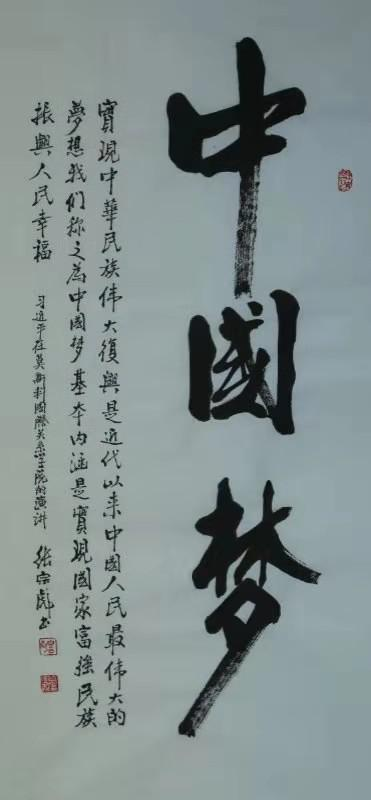 中國梦
實現中華民族伟大復興是近代以来中國人民最伟大的
夢想我们称之為中國梦基本内涵是實現國家富强民族
振興人民幸福
习近平在莫斯科國際关系学院的演讲
张宗彪书